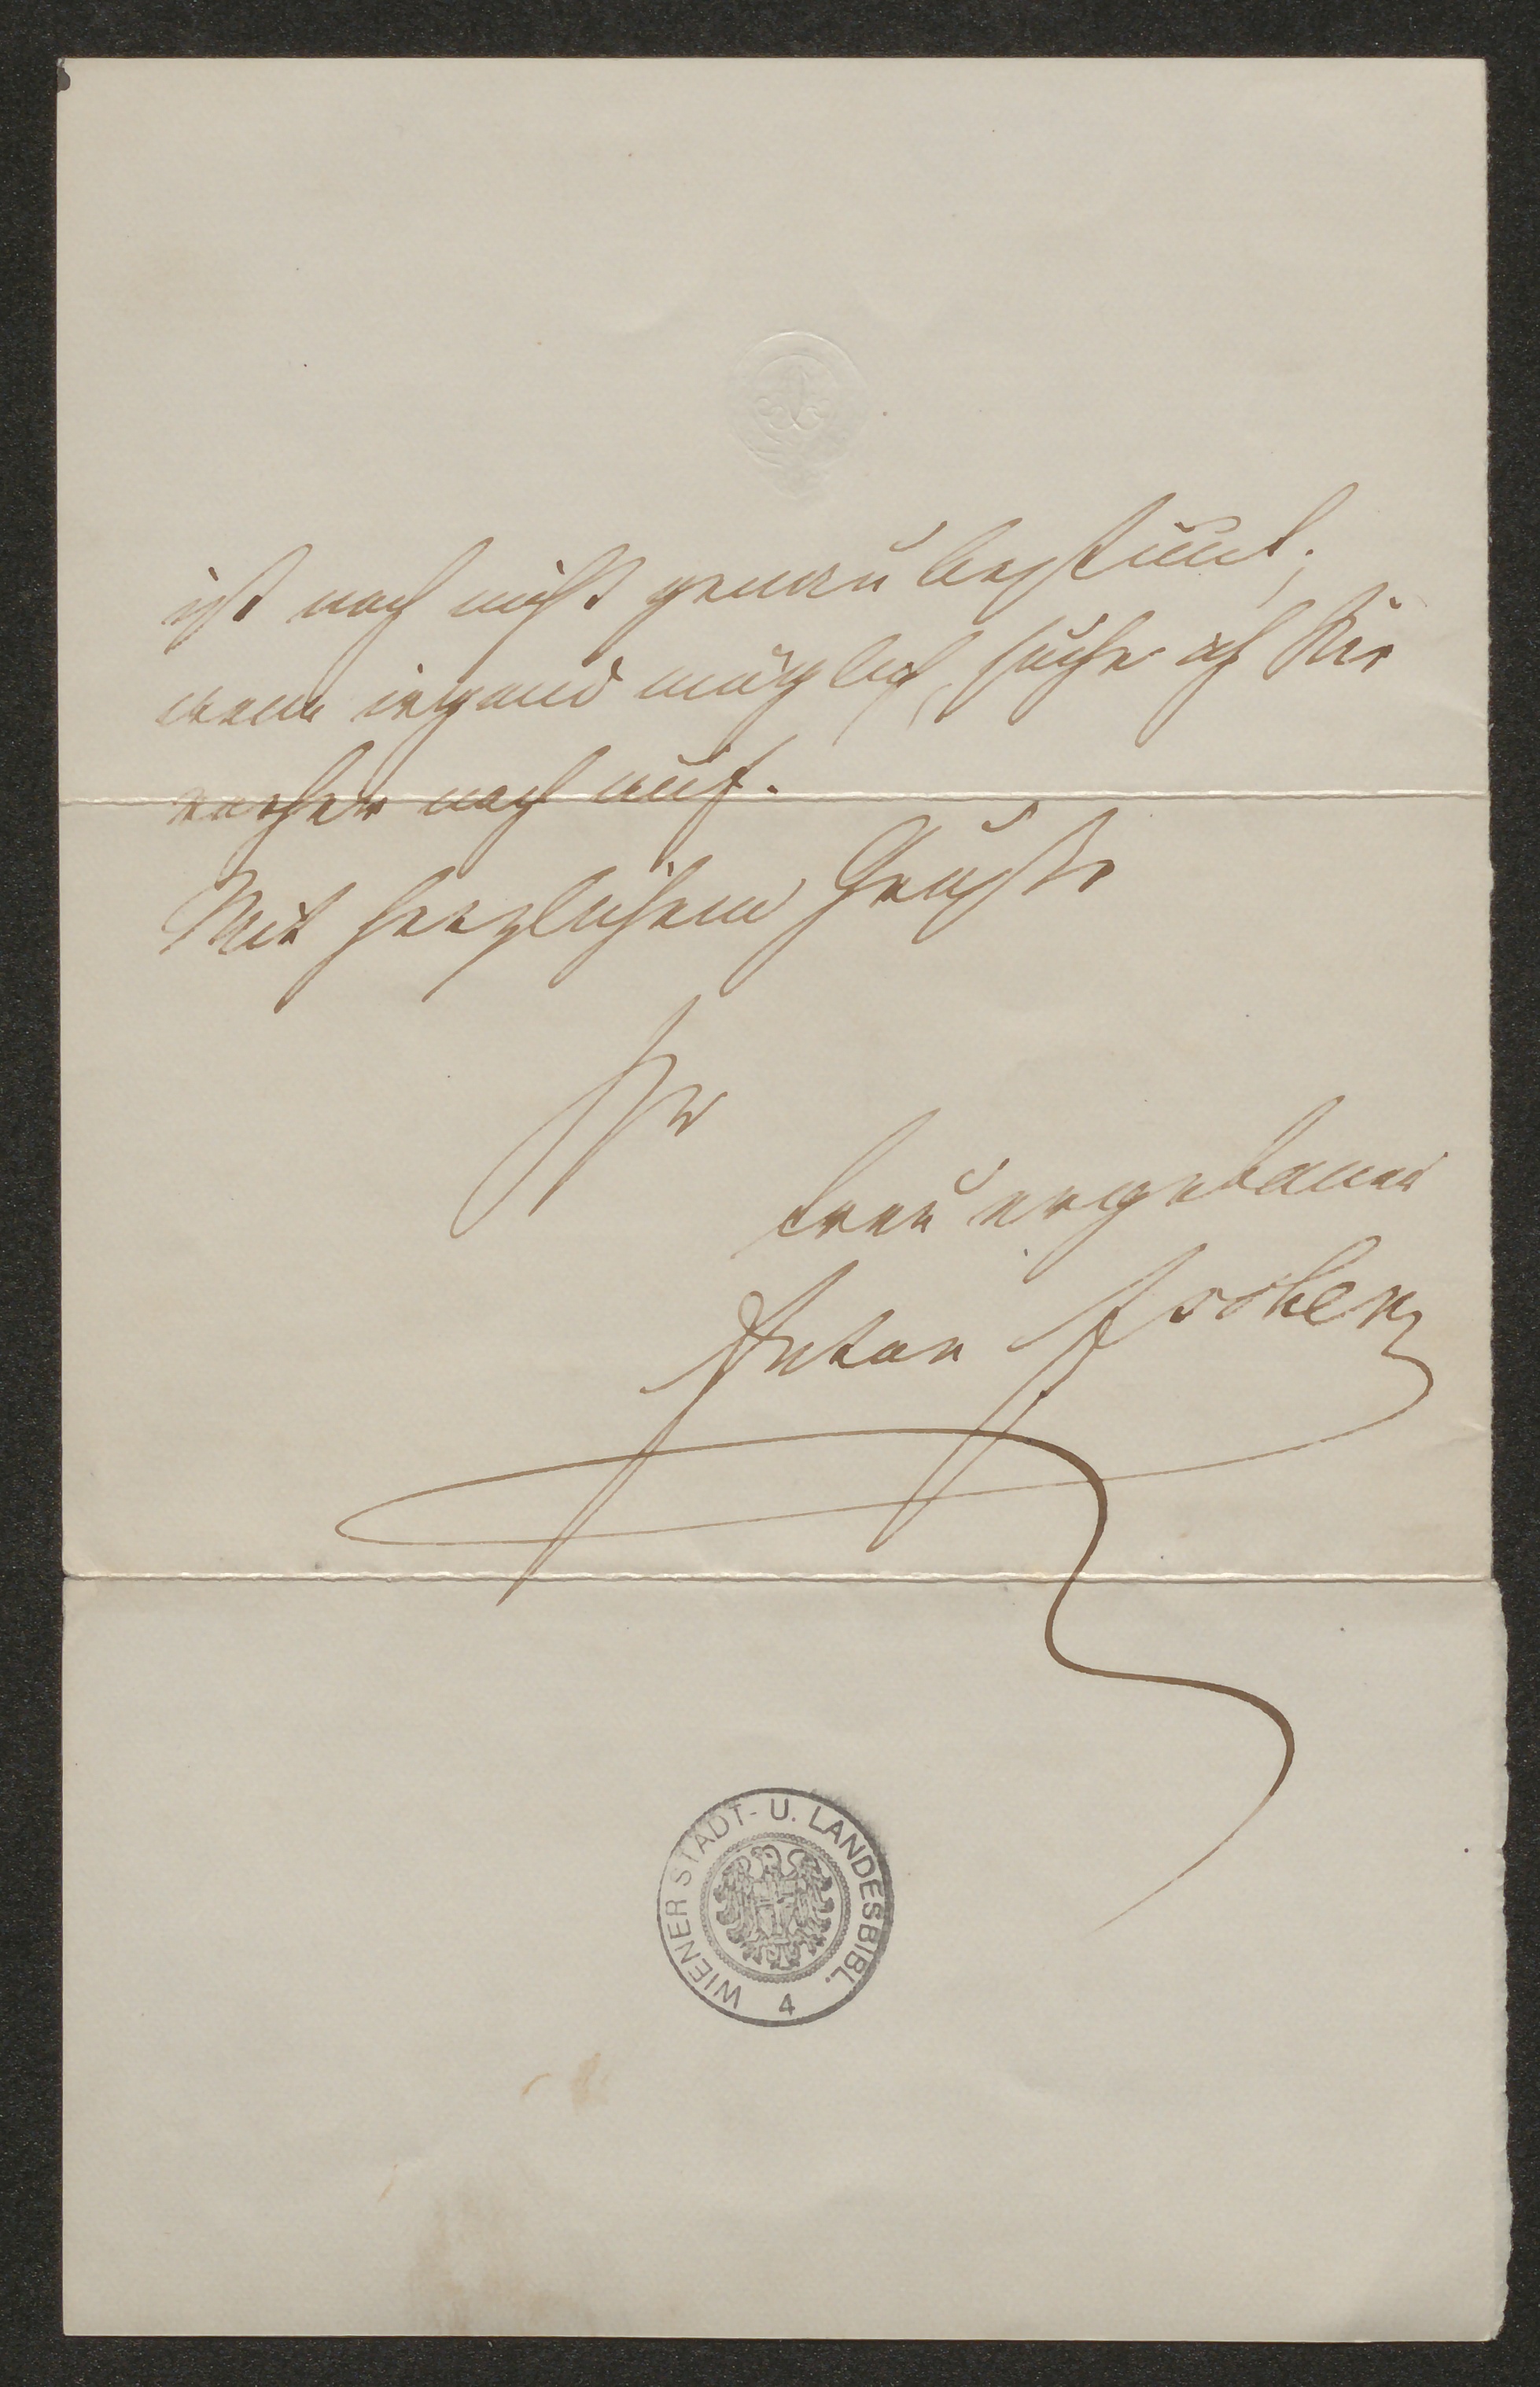 ist noch nicht genau bestimt;
wenn irgend möglich, suche ich Sie
vorher noch auf.
Mit herzlichem Gruße
Ihr
treu ergebener
Anton Ascher
WIENER STADT- U. LANDESBIBL.
4